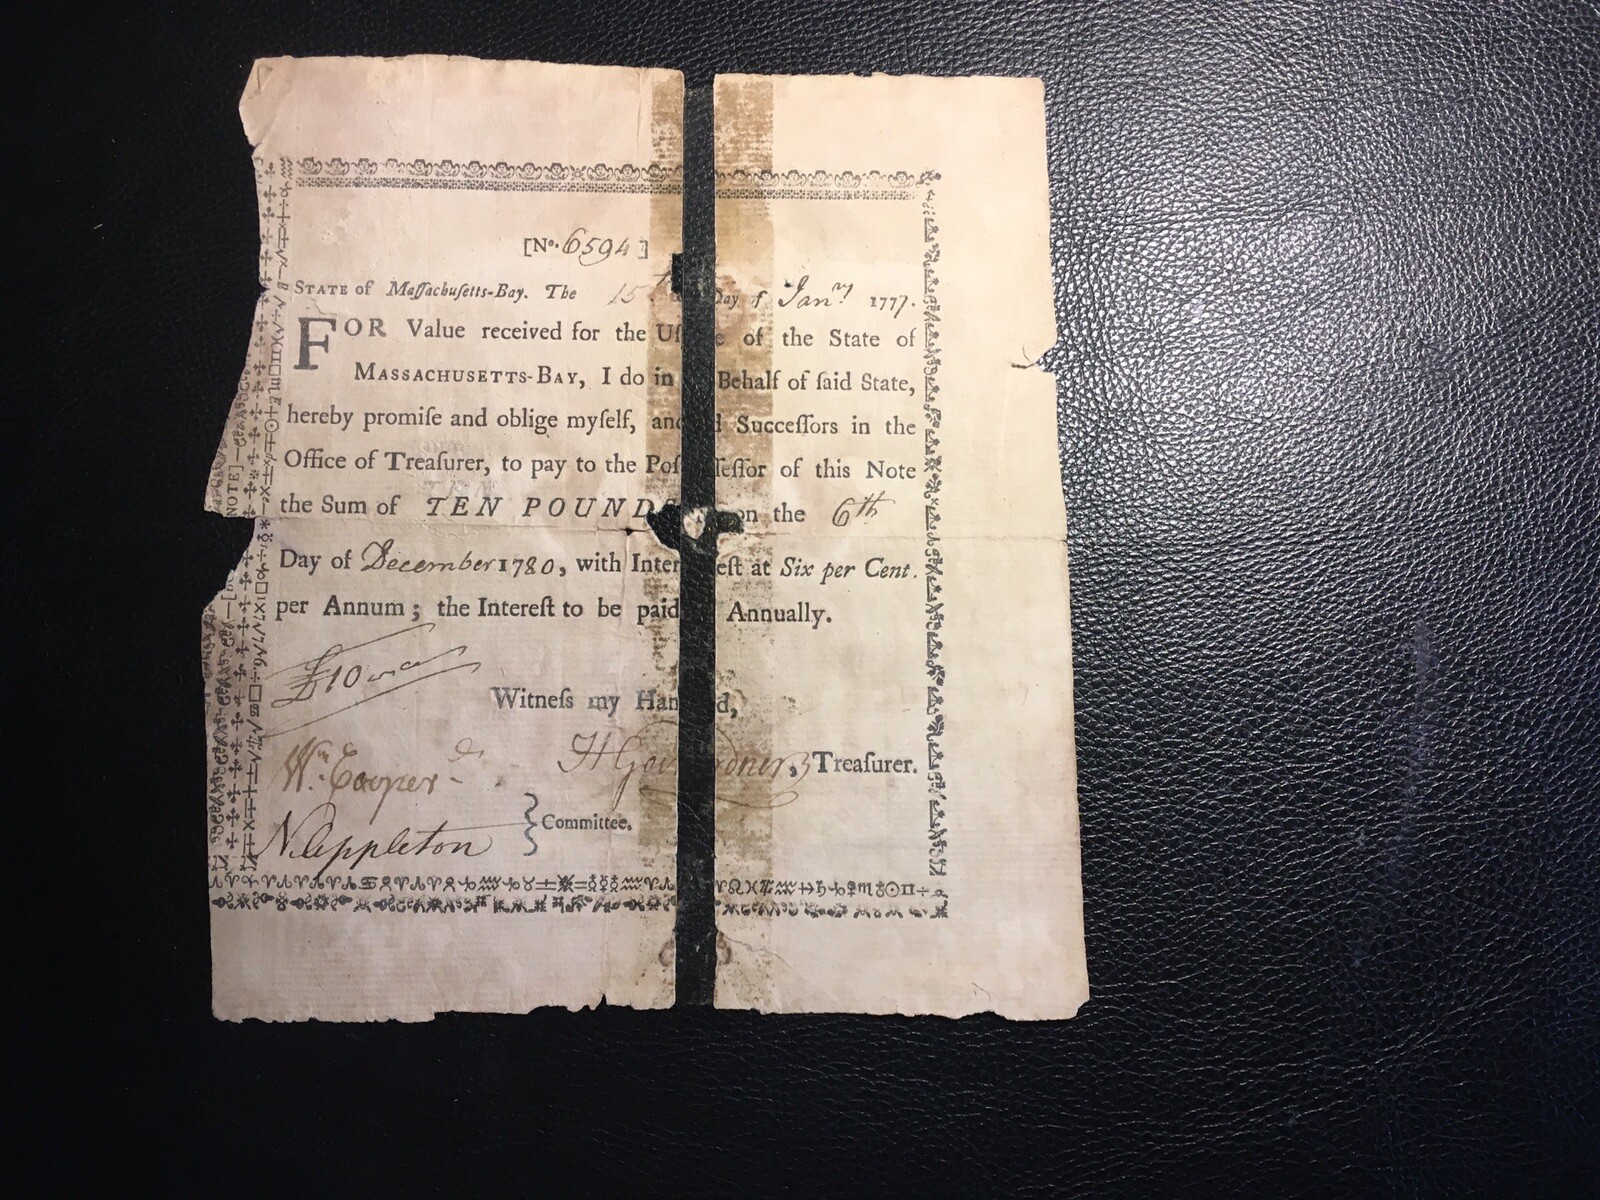 [No. 6594]
STATE of Maſſachuſetts-Bay. The 15th Day of Jany 1777.
FOR Value received for the Uſe of the State of
MASSACHUSETTS-BAY, I do in Behalf of ſaid State,
hereby promiſe and oblige myſelf, and Succeſſors in the
Office of Treaſurer, to pay to the Poſſeſſor of this Note
the Sum of TEN POUNDS on the 6th
Day of December 1780, with Intereſt at Six per Cent.
per Annum; the Intereſt to be paid Annually.
£10
Witneſs my Hand,
Wm Cooper
H Gardner, Treaſurer.
N Appleton
} Committee.
NOTE]